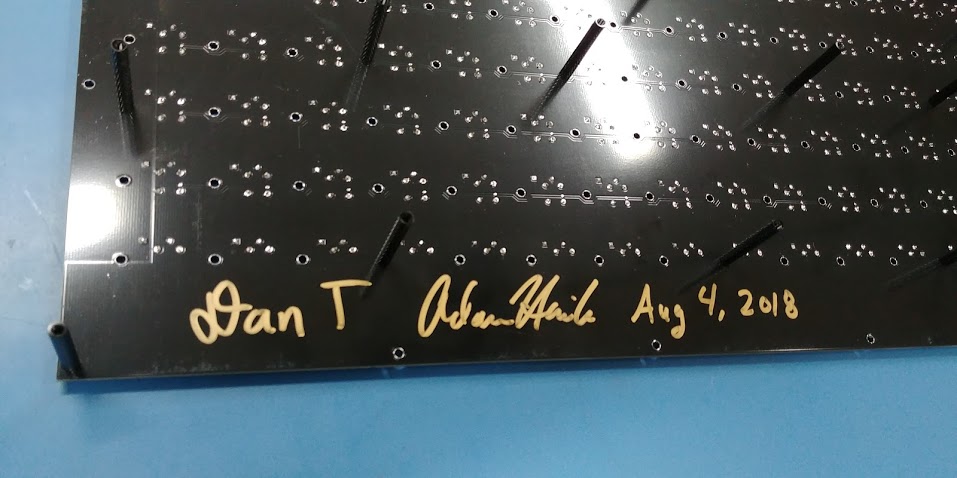 Dan T Adam Haile Aug 4, 2018